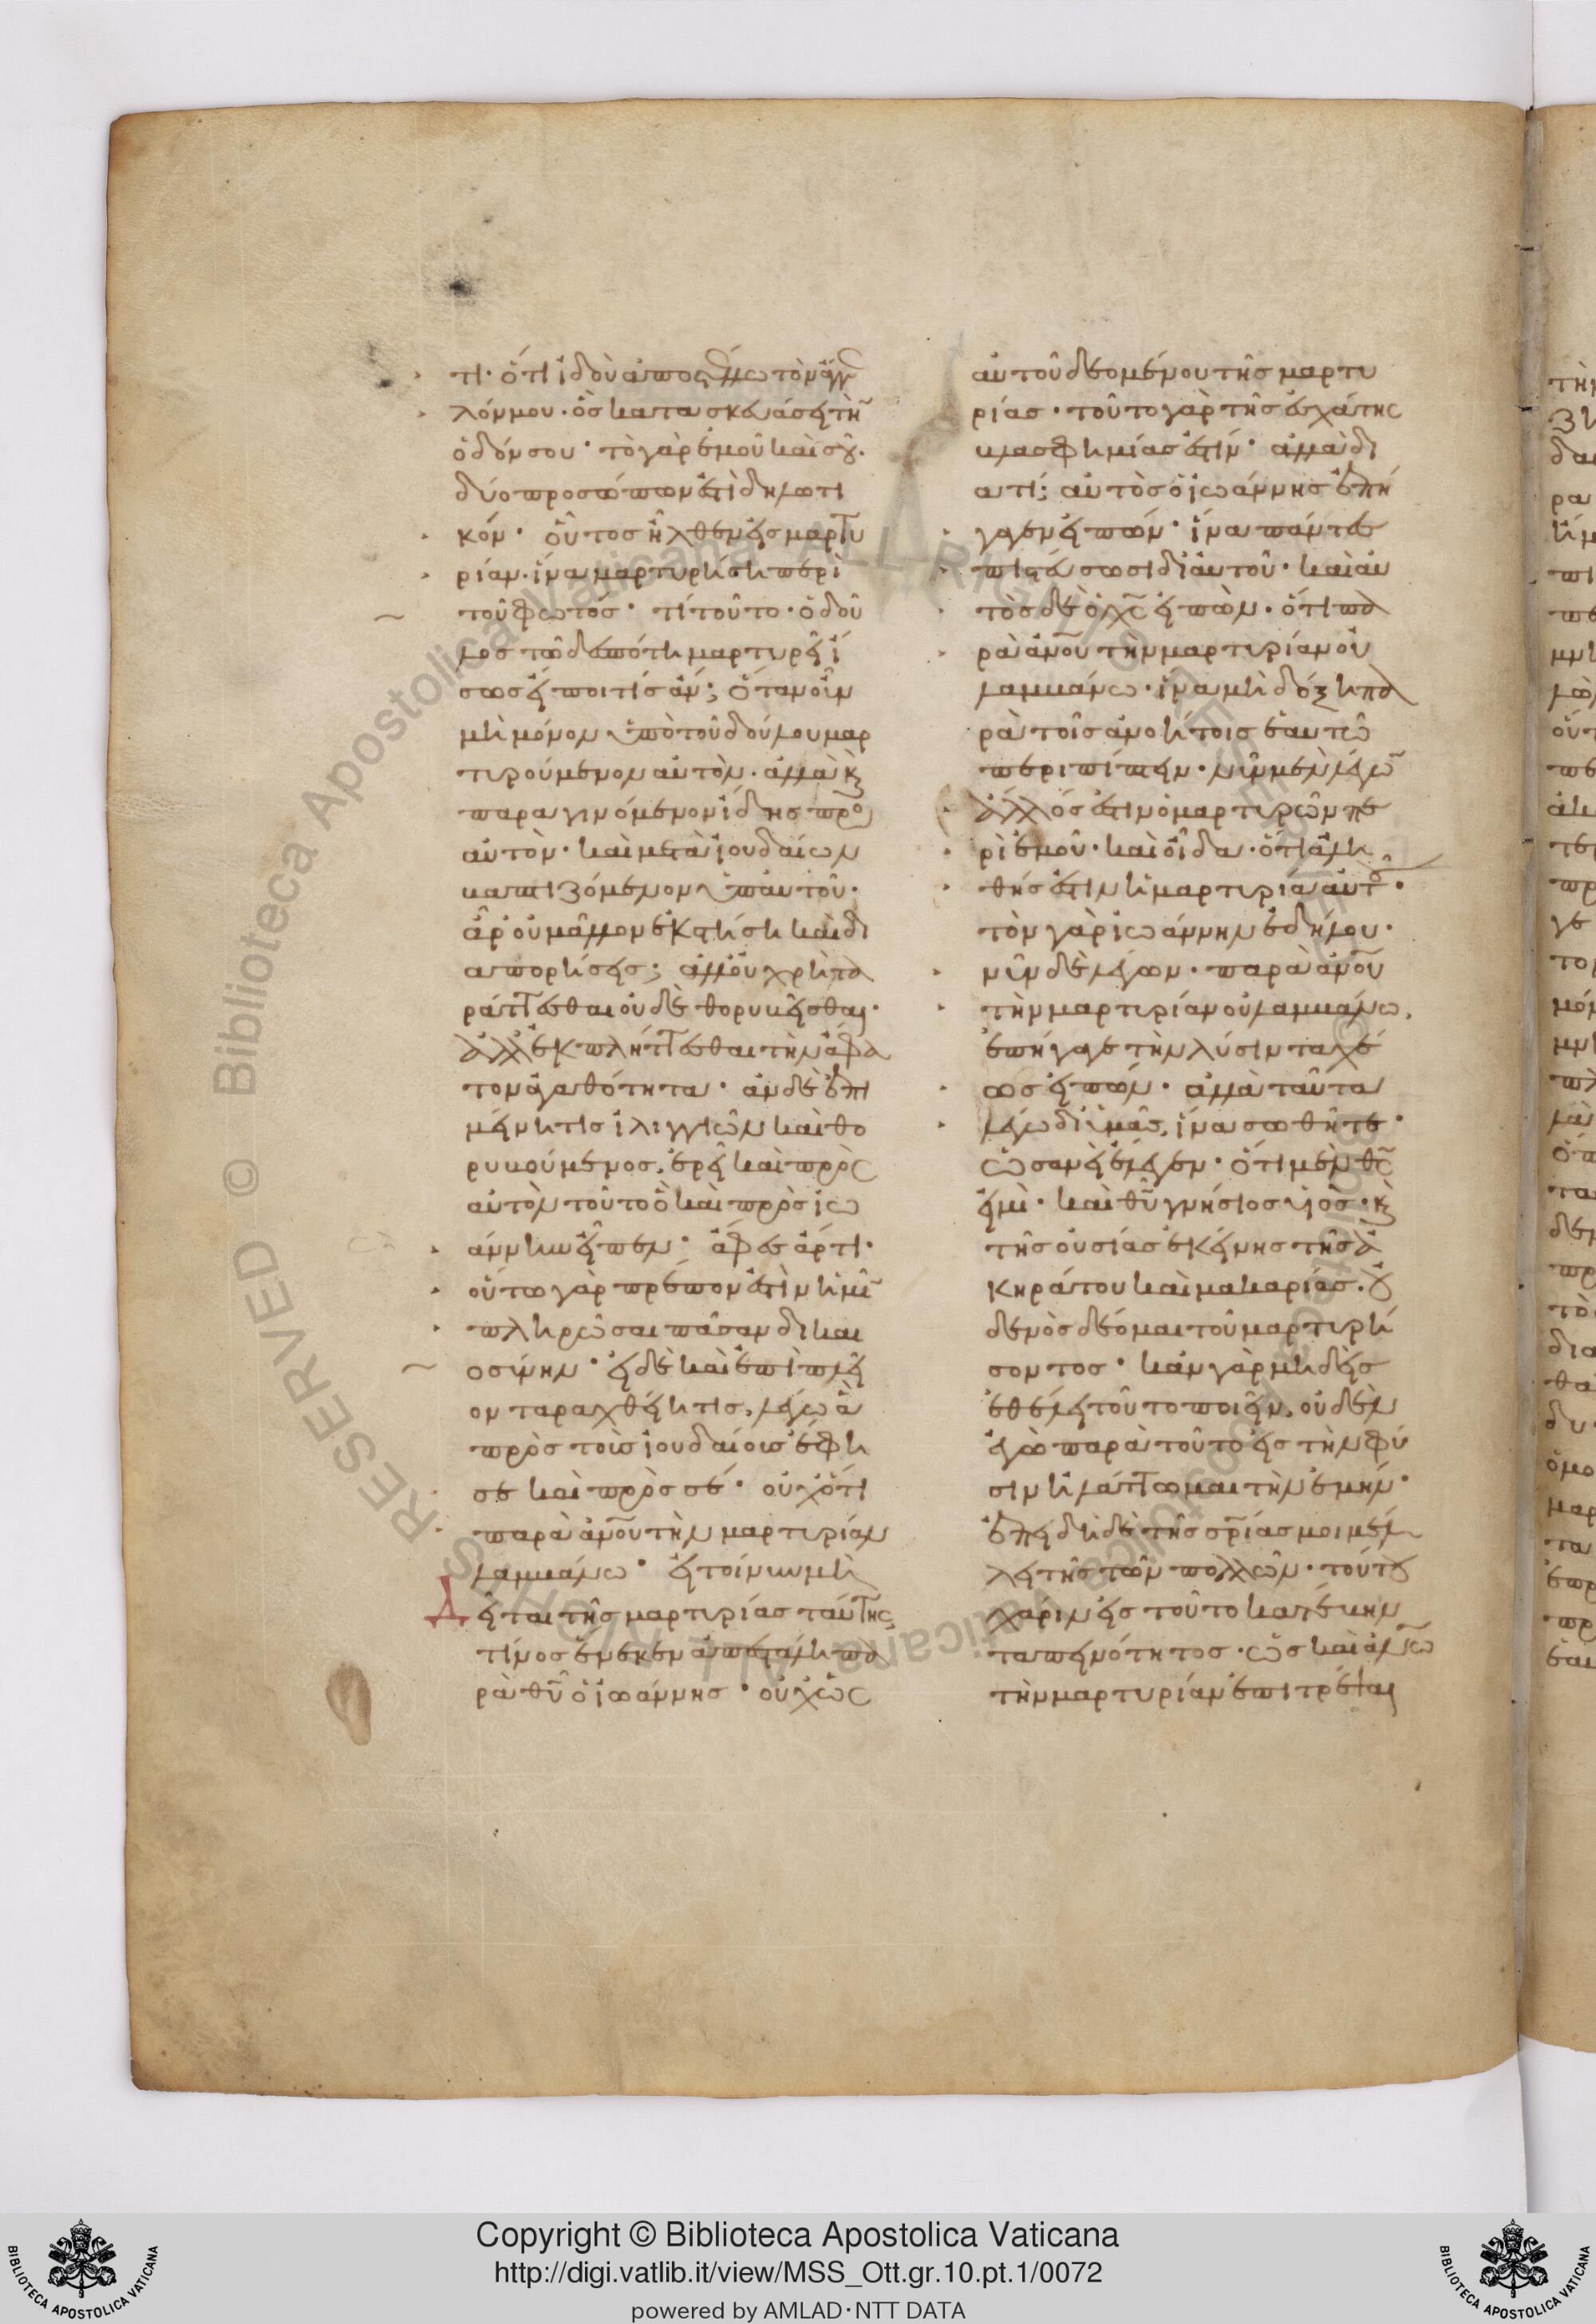 τι· ὅτι ἰδοὺ ἀποστέλλω τὸν ἄγγε
λόν μου· ὃς κατασκευάσει τὴν
ὁδόν σου· τὸ γὰρ ἐμοῦ καὶ σοῦ·
δύο προσώπων ἐστὶ δηλωτι
κόν· οὗτος ἦλθεν εἰς μαρτυ
ρίαν· ἵνα μαρτυρήση περὶ
τοῦ φωτός· τί τοῦτο· ὁ δοῦ
λος τῶ δεσπότη μαρτυρεῖ ἴ
σως εἴποι τίς ἄν; ὅταν οὖν
μὴ μόνον ὑπὸ τοῦ δούλου μαρ
τυρούμενον αὐτὸν· ἀλλὰ καὶ
παραγινόμενον ἴδης προς
αὐτὸν· καὶ μετὰ ἰουδαίων
βαπτιζόμενον ὑπ αὐτοῦ·
ἆρ οὐ μᾶλλον ἐκστήση καὶ δι
απορήσεις; ἀλλ οὐ χρὴ τα
ράττεσθαι οὐδὲ θορυβεῖσθαι·
ἀλλ ἐκπλήττεσθαι τὴν ἄφα
τον ἀγαθότητα· ἂν δὲ ἐπι
μένη τις ἰλιγγιῶν καὶ θο
ρυβούμενος, ἐρεῖ καὶ πρὸς
αὐτὸν τοῦτο ὃ καὶ πρὸς ἰω
άννην εἶπεν· ἄφες ἄρτι·
οὕτω γὰρ πρέπον ἐστὶν ἡμῖν
πληρῶσαι πᾶσαν δικαι
οσύνην· εἰ δὲ καὶ ἐπὶ πλεῖ
ον ταραχθείη τις, λέγω ἃ
πρὸς τοὺς ἰουδαίους ἔφη
σε καὶ πρὸς σέ· οὐχ ὅτι
παρὰ ἀνου τὴν μαρτυρίαν
λαμβάνω· εἰ τοίνυν μὴ
δεῖται τῆς μαρτυρίας ταύτης
τίνος ἕνεκεν ἀπεστάλη πα
ρὰ θυ ὁ ἰωάννης· οὐχ ὡς
αὐτοῦ δεομένου τῆς μαρτυ
ρίας· τοῦτο γὰρ τῆς ἐσχάτης
βλασφημίας ἐστίν· ἀλλὰ δι
ατί; αὐτὸς ὁ ἰωάννης ἐπή
γαγεν εἰπών· ἵνα πάντες
πιστεύσωσι δι αὐτοῦ· καὶ αὐ
τὸς δὲ ὁ χς εἰπὼν· ὅτι πα
ρὰ ἀνου τὴν μαρτυρίαν οὐ
λαμβάνω· ἵνα μὴ δόξη πα
ρὰ τοῖς ἀνοήτοις ἑαυτῶ
περιπίπτειν· νῦν μὲν λέγων
ἄλλός ἐστιν ὁ μαρτυρῶν πε
ρὶ ἐμοῦ· καὶ οἶδα· ὅτι ἀλη
θής ἐστιν ἡ μαρτυρία αὐτοῦ·
τὸν γὰρ ἰωάννην ἐδήλου·
νῦν δὲ λέγων· παρὰ ἀνου
τὴν μαρτυρίαν οὐ λαμβάνω,
ἐπήγαγε τὴν λύσιν ταχέ
ως εἰπών· ἀλλὰ ταῦτα
λέγω δι ὑμᾶς, ἵνα σωθῆτε·
ὡσανεὶ ἔλεγεν· ὅτι μὲν θς
εἰμὶ· καὶ θυ γνήσιος υἱὸς· καὶ
τῆς οὐσίας ἐκείνης τῆς ἀ
κηράτου καὶ μακαρίας· οὐ
δενὸς δέομαι τοῦ μαρτυρή
σοντος· κἂν γὰρ μηδεὶς
ἐθέλει τοῦτο ποιεῖν, οὐδὲν
ἐγὼ παρὰ τοῦτο εἰς τὴν φύ
σιν ἠλάττωμαι τὴν ἐμήν·
ἐπειδὴ δὲ τῆς σρίας μοι μέ
λει τῆς τῶν πολλῶν· τούτου
χάριν εἰς τοῦτο κατέβην
ταπεινότητος· ὡς καὶ ἀνω
τὴν μαρτυρίαν ἐπιτρέψαι